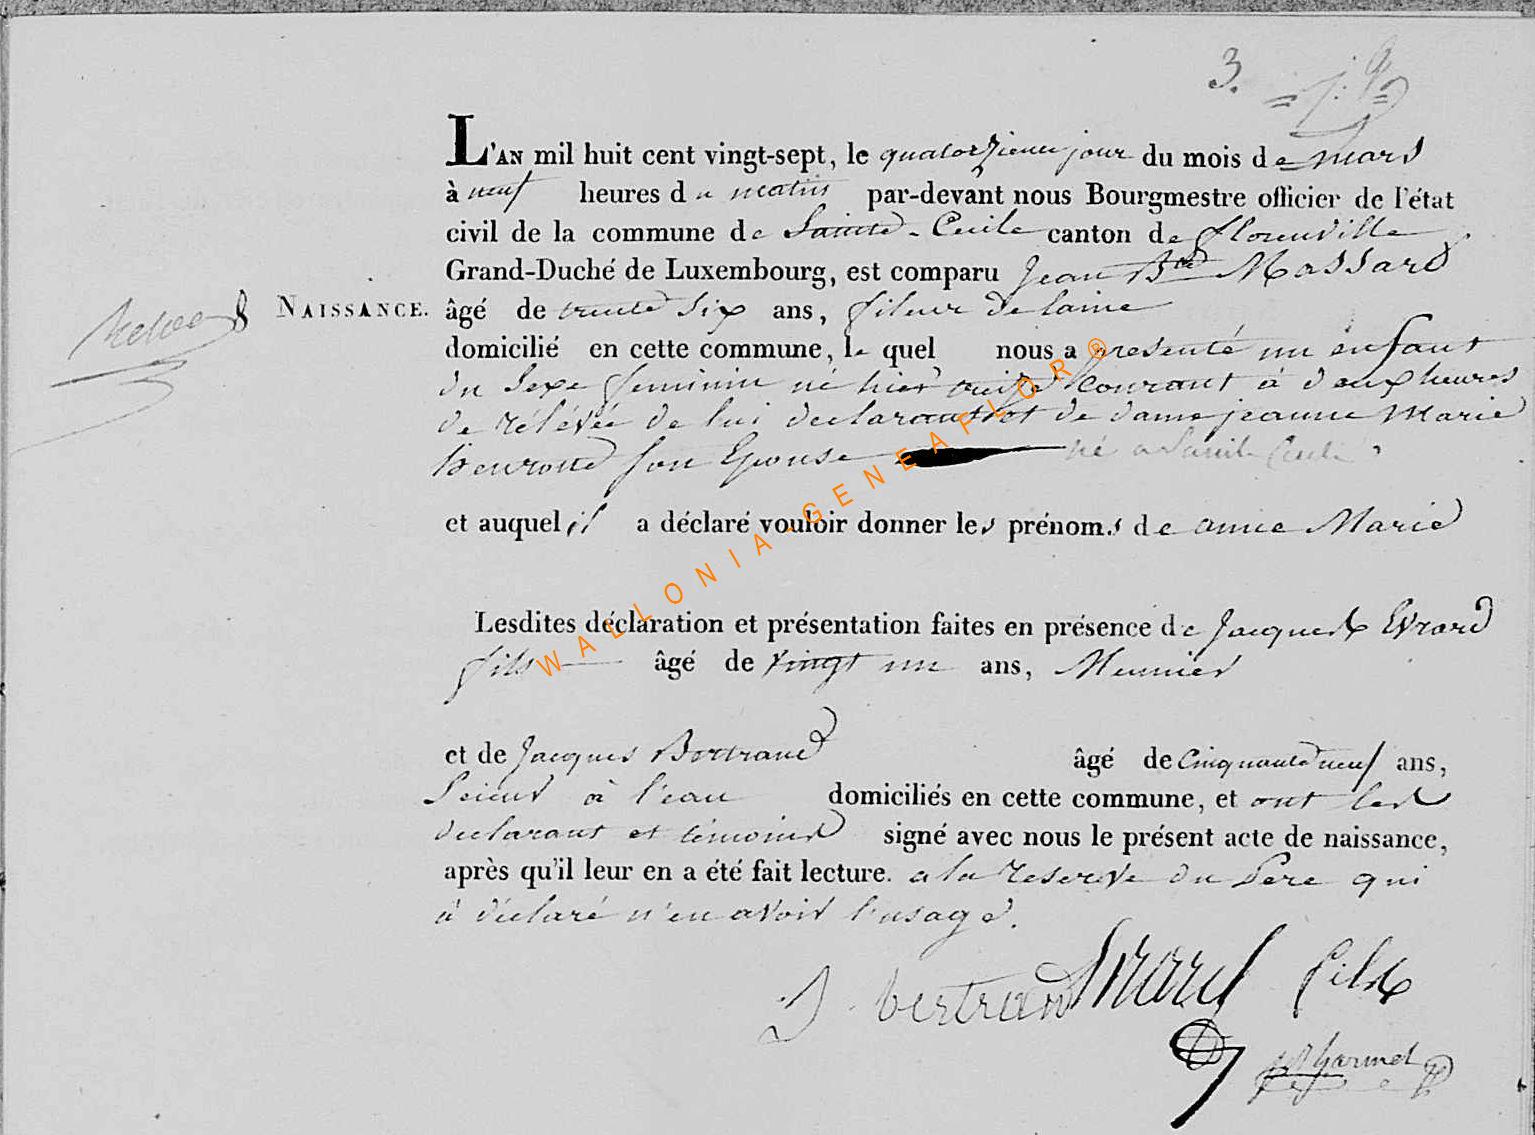 3.
L'AN mil huit cent vingt-sept, le quatorzieme jour du mois de mars
à neuf heures du matin par-devant nous Bourgmestre officier de l'état
civil de la commune de Sainte-Cecile canton de florenville
Grand-Duché de Luxembourg, est comparu Jean Bte Massard
8 NAISSANCE. âgé de trente six ans, fileur de laine
domicilié en cette commune, le quel nous a presenté un enfant
du Sexe feminin né hier treize courant à deux heures
de rélévée de lui declarant et de dame jeanne Marie
henrotte son Epouse né a Sainte Cecile
et auquel il a déclaré vouloir donner les prénoms de anne Marie
Lesdites déclaration et présentation faites en présence de Jacques Evrard
fils âgé de vingt un ans, Meunier
et de Jacques Bertrand âgé de Cinquante neuf ans,
Scieur à l'eau domiciliés en cette commune, et ont les
declarant et témoins signé avec nous le présent acte de naissance,
après qu'il leur en a été fait lecture. a la reserve du Pere qui
a déclaré n'en avoir l'usage.
J. bertrand Evrard fils
WALLONIA-GENEAFLOR®